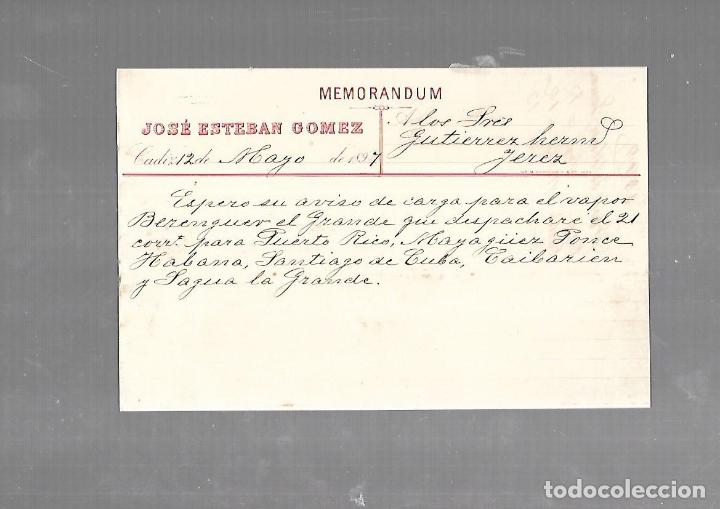 MEMORANDUM
JOSÉ ESTEBAN GOMEZ
Cadiz 12 de Mayo de 1897
A los Sres
Gutierrez herms
Jerez
Espero su aviso de carga para el vapor
Berenguer el Grande qu despacharé el 21
corrte para Puerto Rico, Mayagüez Ponce
Habana, Santiago de Cuba, Caibarien
y Sagua la Grande.
todocoleccion.net